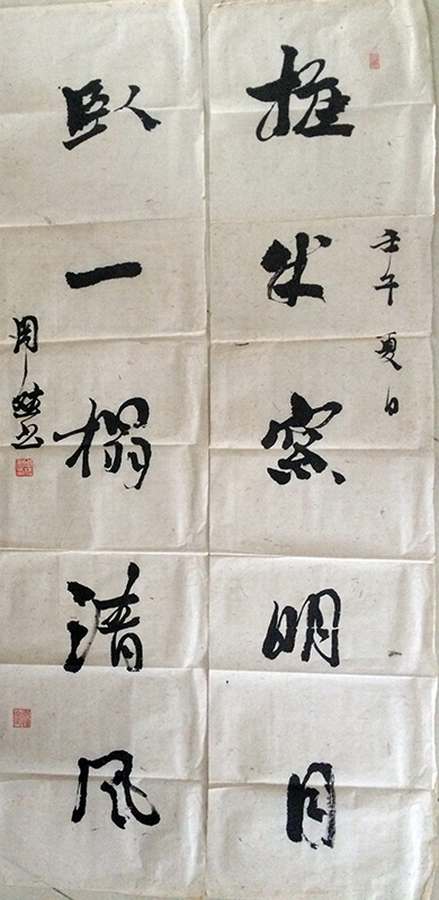 壬午夏日
推半窗明月
臥一榻清风
周 书